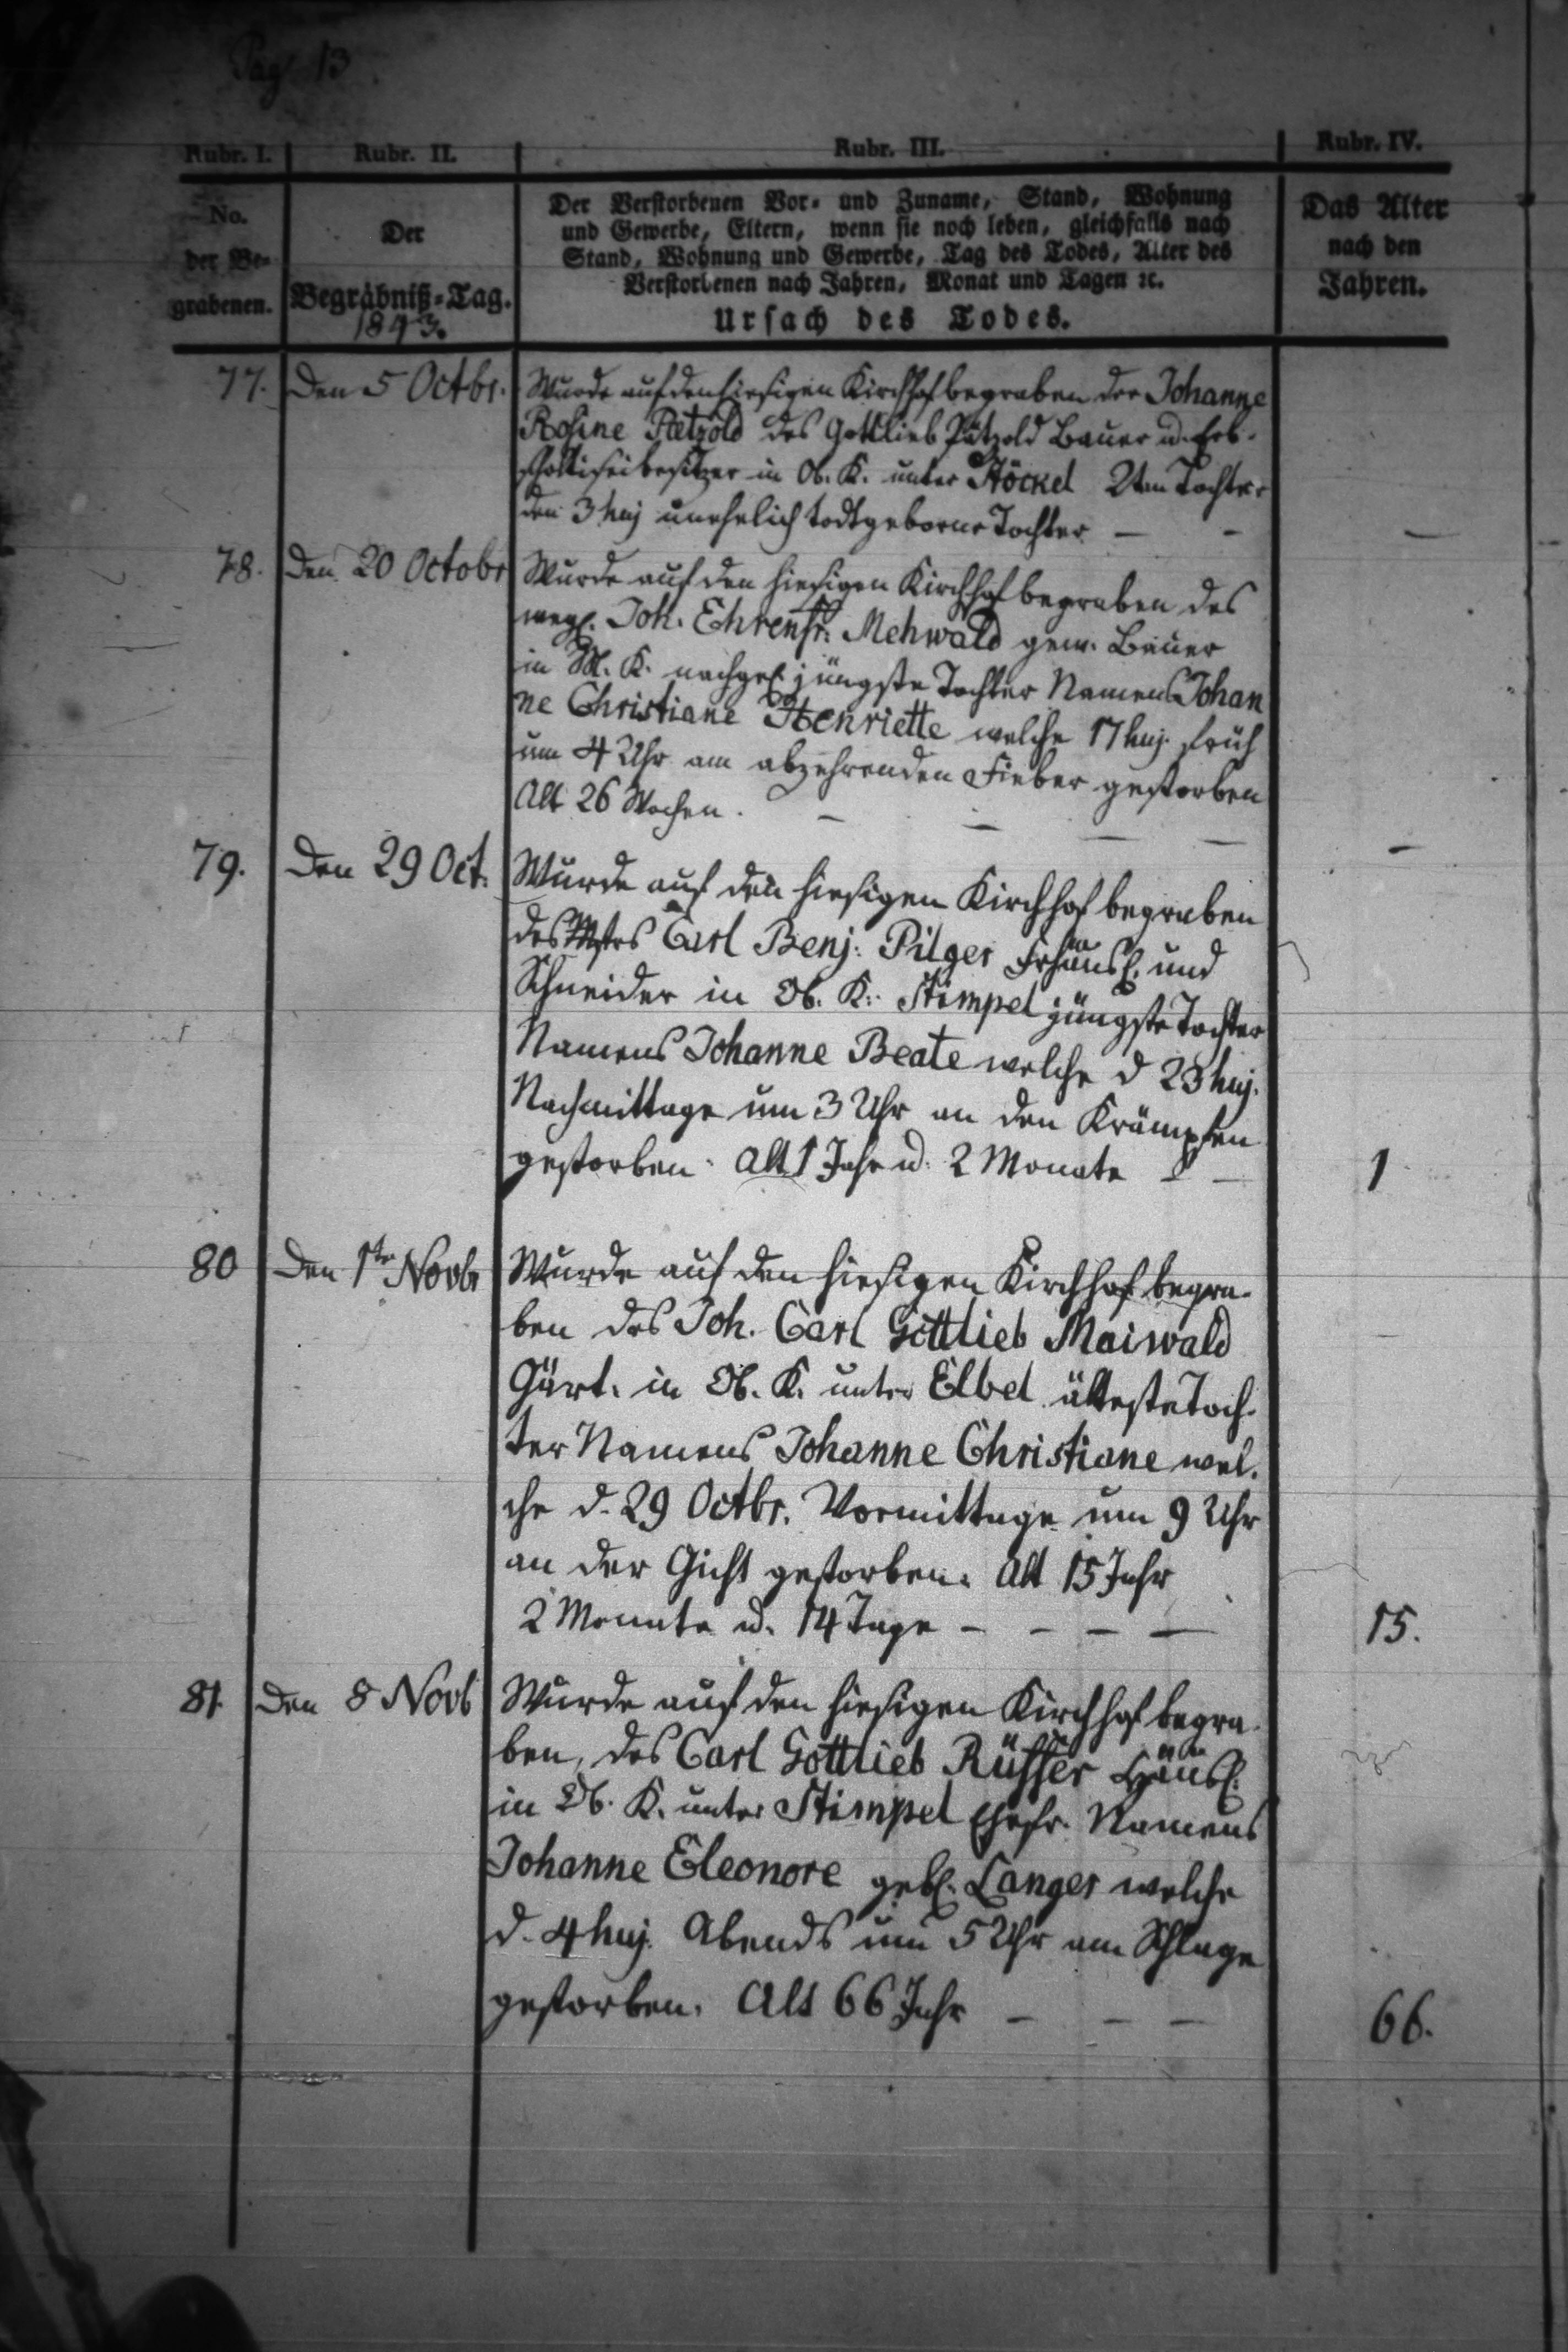 Pag 13
Rubr. I.
Rubr. II.
Rubr. III.
Rubr. IV.
No.
der Be-
grabenen.
Der
Begräbniß-Tag.
1843.
Der Verstorbenen Vor- und Zuname, Stand, Wohnung
und Gewerbe, Eltern, wenn sie noch leben, gleichfalls nach
Stand, Wohnung und Gewerbe, Tag des Todes, Alter des
Verstorbenen nach Jahren, Monat und Tagen ꝛc.
Ursach des Todes.
Das Alter
nach den
Jahren.
77. Den 5 Octbr. Wurde auf den hiesigen Kirchhof begraben der Johanne
Rosine Pätzold des Gottlieb Pätzold Bauer u. Erb-
scholtiseibesitzer in Ob. K. unter Stöckel 2ten Tochter
den 3 huj unehelich todtgeborne Tochter — - —
78. Den 20 Octobr Wurde auf den hiesigen Kirchhof begraben des
Joh. Ehrenfr. Mehwald gew. Bauer
in M. K. nachgel. jüngste Tochter Namens Johan
ne Christiane Henriette welche 17 huj. früh
um 4 Uhr am abzehrenden Fieber gestorben
Alt 26 Wochen. — — — — -
79. Den 29 Oct. Wurde auf den hiesigen Kirchhof begraben
des Mstrs Carl Benj. Pilger Frhäusl. und
Schneider in Ob. K. Stimpel jüngste Tochter
Namens Johanne Beate welche d 23 huj.
Nachmittage um 3 Uhr an den Krämpfen
gestorben. Alt 1 Jahr u. 2 Monate - — 1
80 Den 1te Novbr Wurde auf den hiesigen Kirchhof begra-
ben des Joh. Carl Gottlieb Maiwald
Gärt. in Ob. K. unter Elbel älteste Toch-
ter Namens Johanne Christiane wel-
che d. 29 Octbr. Vormittage um 9 Uhr
an der Gicht gestorben. Alt 15 Jahr
2 Monate u. 14 Tage - - — — 15.
81. Den 8 Novb Wurde auf den hiesigen Kirchhof begra-
ben, des Carl Gottlieb Rüffer Häusl.
in Ob. K. unter Stimpel Ehefr. Namens
Johanne Eleonore gebl. Langer welche
d. 4 huj. Abends um 5 Uhr am Schlage
gestorben. Alt 66 Jahr — — — 66.